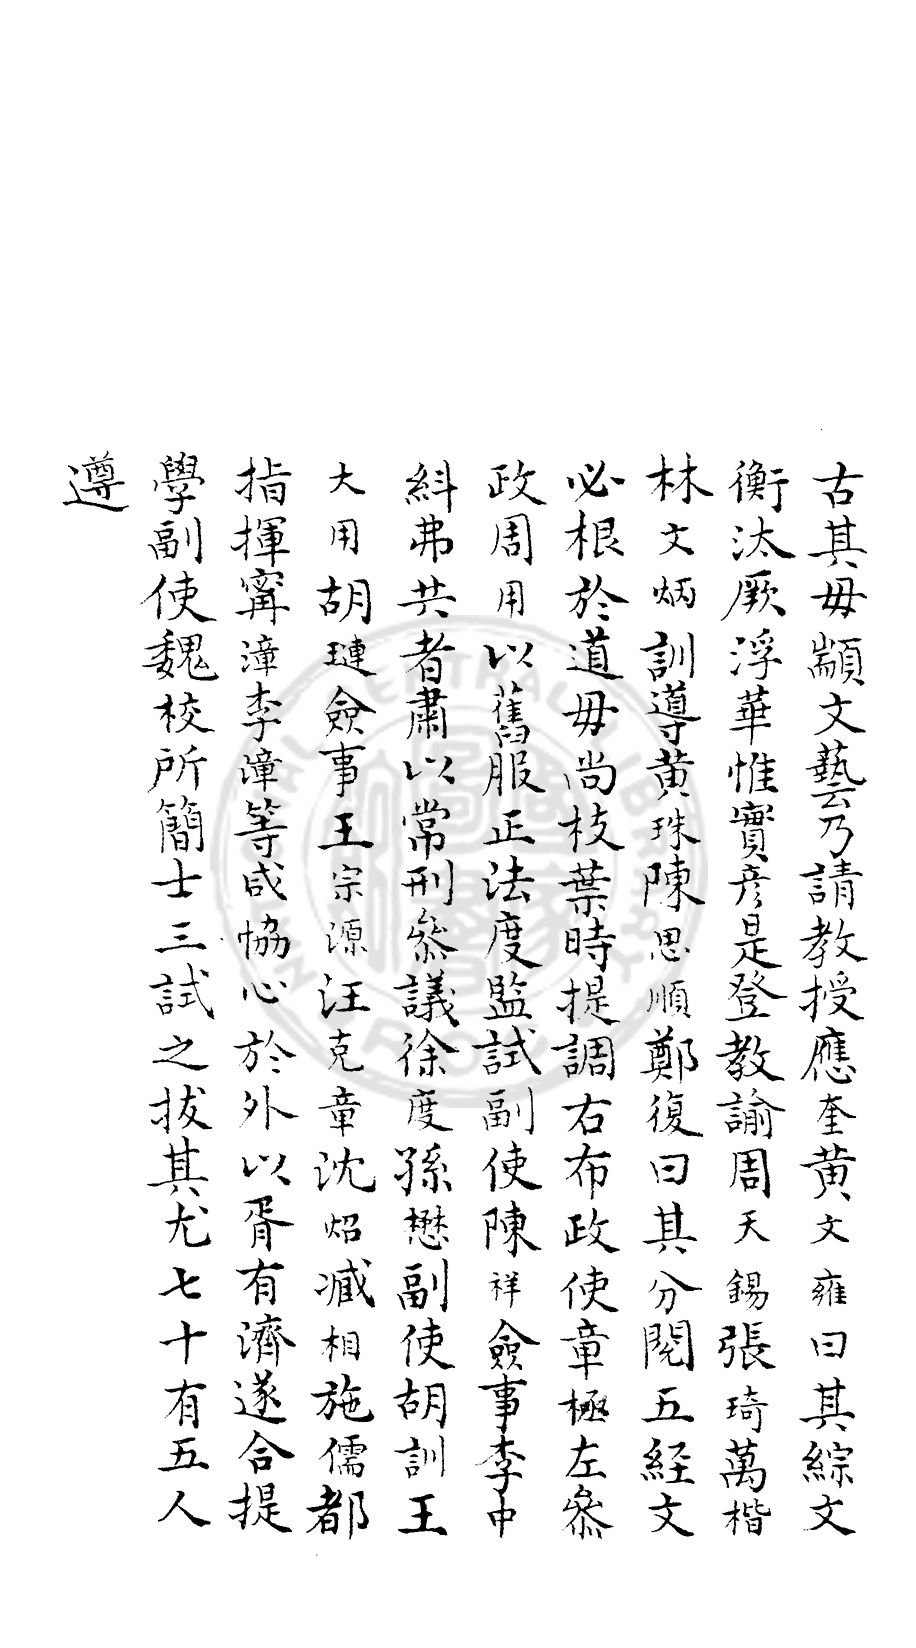 古其毋顓文藝乃請教授應奎黄文雍曰其綜文
衡汰厥浮華惟實彦是登教諭周天錫張琦萬楷
林文炳訓導黄珠陳思順鄭復曰其分閱五経文
必根於道毋尚枝葉時提調右布政使章極左叅
政周用以舊服正法度監試副使陳祥僉事李中
糾弗共者肅以常刑叅議徐度孫懋副使胡訓王
大用胡璉僉事王宗源汪克章沈炤臧相施儒都
指揮寗漳李漳等咸恊心於外以胥有濟遂合提
學副使魏校所簡士三試之拔其尤七十有五人
遵